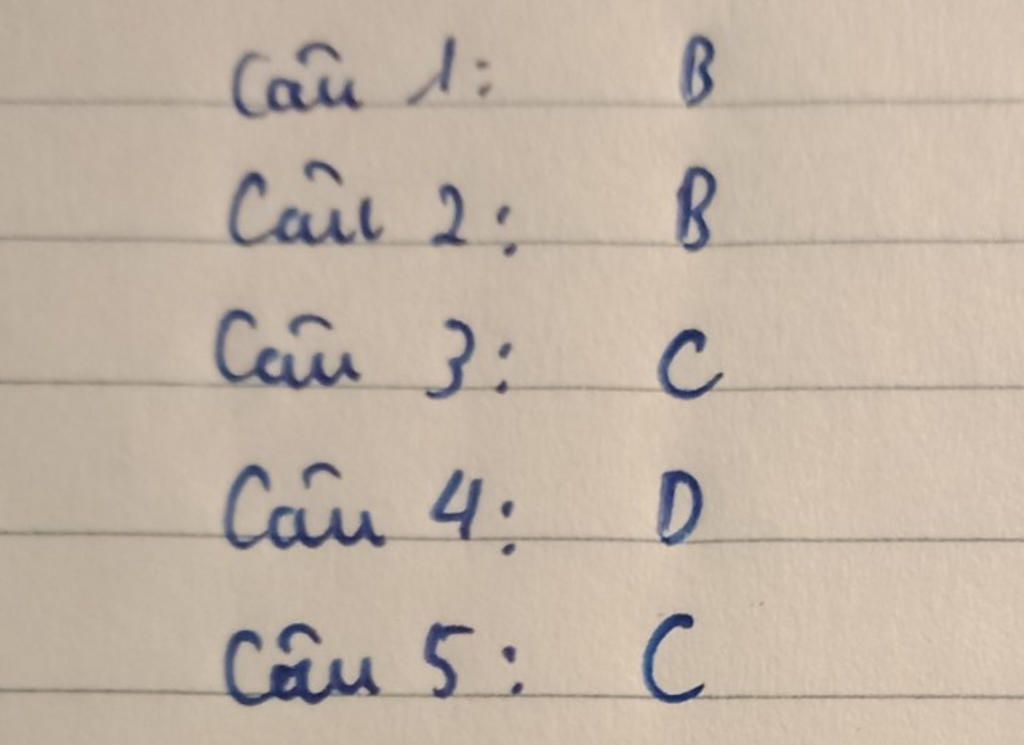 Câu 1: B
Câu 2: B
Câu 3: C
Câu 4: D
Câu 5: C